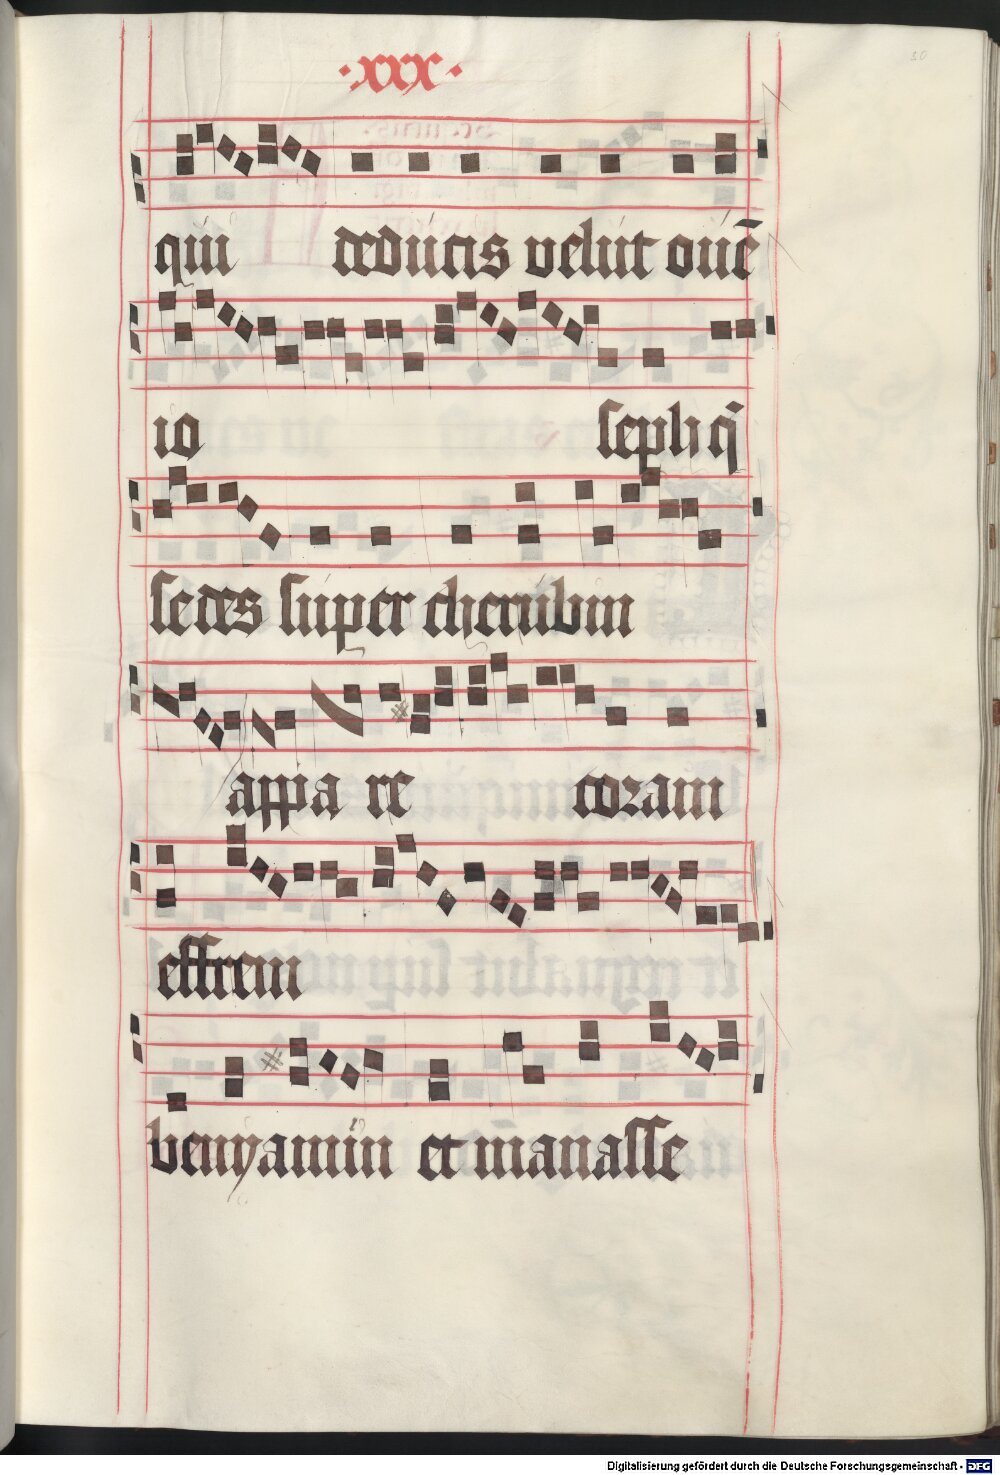 ·xxx·
20
qui deducis velut ouē
io seph q̄
sedes super cherubin
appa re coram
effrem
benyamin et manasse
Digitalisierung gefördert durch die Deutsche Forschungsgemeinschaft - DFG